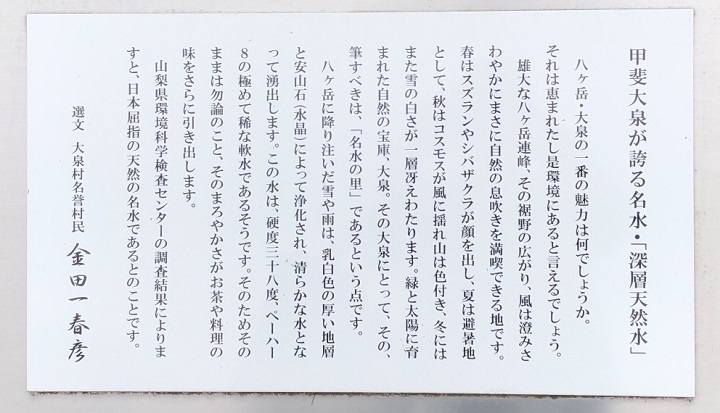 甲斐大泉が誇る名水・「深層天然水」
八ヶ岳・大泉の一番の魅力は何でしょうか。
それは恵まれたし是環境にあると言えるでしょう。
雄大な八ヶ岳連峰、その裾野の広がり、風は澄みさ
わやかにまさに自然の息吹きを満喫できる地です。
春はスズランやシバザクラが顔を出し、夏は避暑地
として、秋はコスモスが風に揺れ山は色付き、冬には
また雪の白さが一層冴えわたります。緑と太陽に育
まれた自然の宝庫、大泉。その大泉にとって、その、
筆すべきは、「名水の里」であるという点です。
八ヶ岳に降り注いだ雪や雨は、乳白色の厚い地層
と安山石(水晶)によって浄化され、清らかな水とな
って湧出します。この水は、硬度三十八度、ペーハー
8の極めて稀な軟水であるそうです。そのためその
ままは勿論のこと、そのまろやかさがお茶や料理の
味をさらに引き出します。
山梨県環境科学検査センターの調査結果によりま
すと、日本屈指の天然の名水であるとのことです。
選文 大泉村名誉村民 金田一春彦